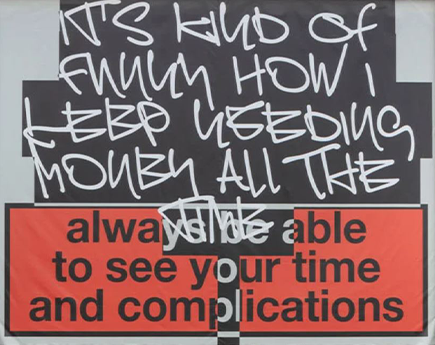 IT'S KIND OF
FUNNY HOW I
KEEP NEEDING
MONEY ALL THE
TIME
always be able
to see your time
and complications